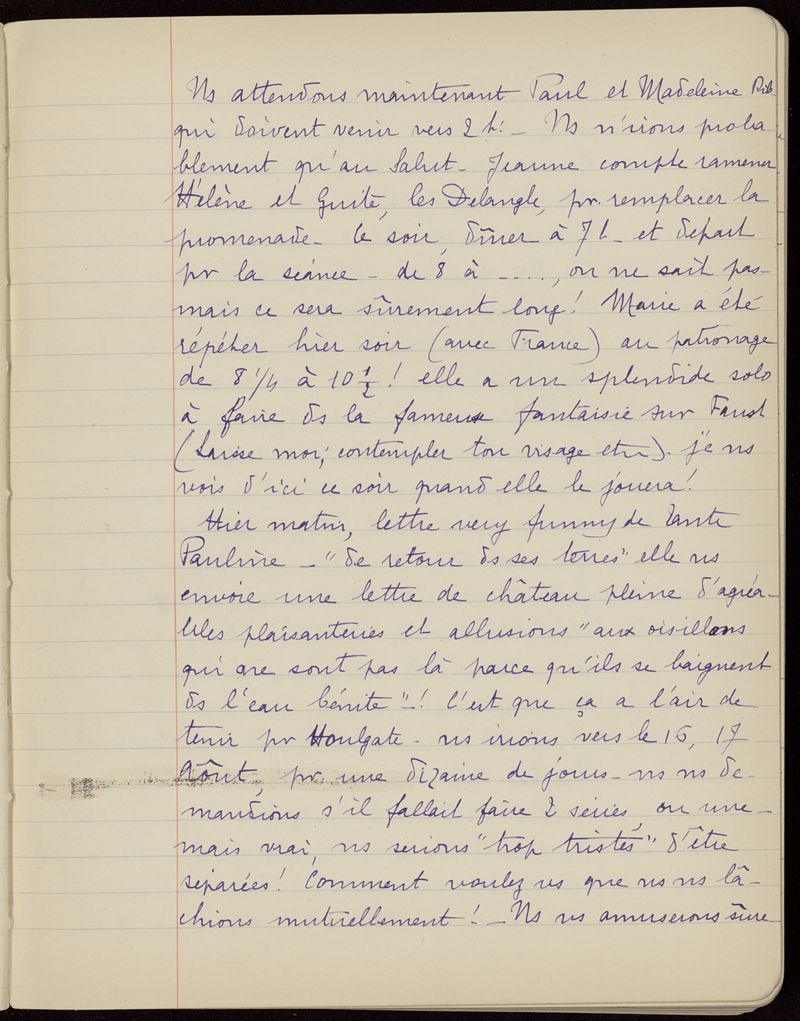 Ns attendons maintenant Paul et Madeleine Rib-
qui doivent venir vers 2 h: – Ns n'irons proba-
blement qu'au Salut – Jeanne compte ramener
Hélène et Guite, les Delangle, pr. remplacer la
promenade – le soir, dîner à 7 h – et départ
pr la séance – de 8 à ....., on ne sait pas –
mais ce sera sûrement long! Marie a été
répéter hier soir (avec France) au patronage
de 8 1/4 à 10 1/2! elle a un splendide solo
à faire ds la fameuse fantaisie sur Faust
(Laisse moi, contempler ton visage etc). je ns
vois d'ici ce soir quand elle le jouera!
Hier matin, lettre very funny de Tante
Pauline – "de retour ds ses terres" elle ns
envoie une lettre de château pleine d'agréa-
bles plaisanteries et allusions "aux oisillons
qui ne sont pas là parce qu'ils se baignent
ds l'eau bénite"–! C'est que ça a l'air de
tenir pr Houlgate – ns irions vers le 16, 17
Août, pr. une dizaine de jours – ns ns de-
mandions s'il fallait faire 2 séries, ou une –
mais vrai, ns serions "trop tristes" d'être
séparées! Comment voulez vs que ns ns lâ-
chions mutuellement! – Ns ns amuserons sûre-